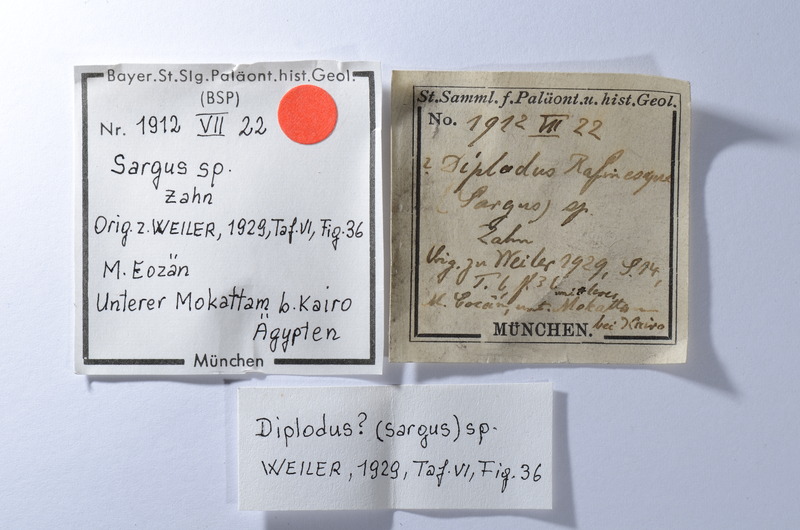 Bayer.St.Slg.Paläont.hist.Geol.
(BSP)
Nr. 1912 VII 22
Sargus sp.
Zahn
Orig. z. WEILER, 1929, Taf. VI, Fig. 36
M. Eozän
Unterer Mokattam b. Kairo
Ägypten
München
St. Samml. f. Paläont. u. hist. Geol.
No. 1912 VII 22
? Diplodus Rafinesque
(Sargus) sp.
Zahn
Orig. zu Weiler 1929, S. 14,
T. 6 f. 36
mittleres
M. Eocän, unt. Mokattam
bei Kairo
MÜNCHEN.
Diplodus? (Sargus) sp.
WEILER, 1929, Taf. VI, Fig. 36